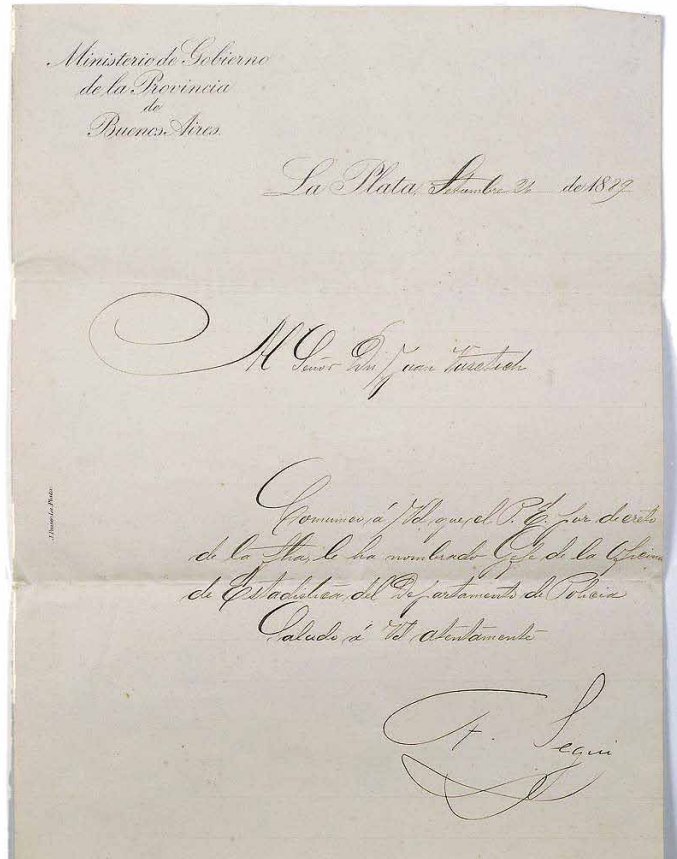 Ministerio de Gobierno
de la Provincia
de
Buenos Aires.
La Plata, Setiembre 26 de 1889
Al Señor Dn Juan Vucetich
Comunico á Vd. que el P. E. por decreto
de la fha, le ha nombrado Gefe de la Oficina
de Estadistica, del Departamento de Policia
Saludo á Vd atentamente
F. Segui